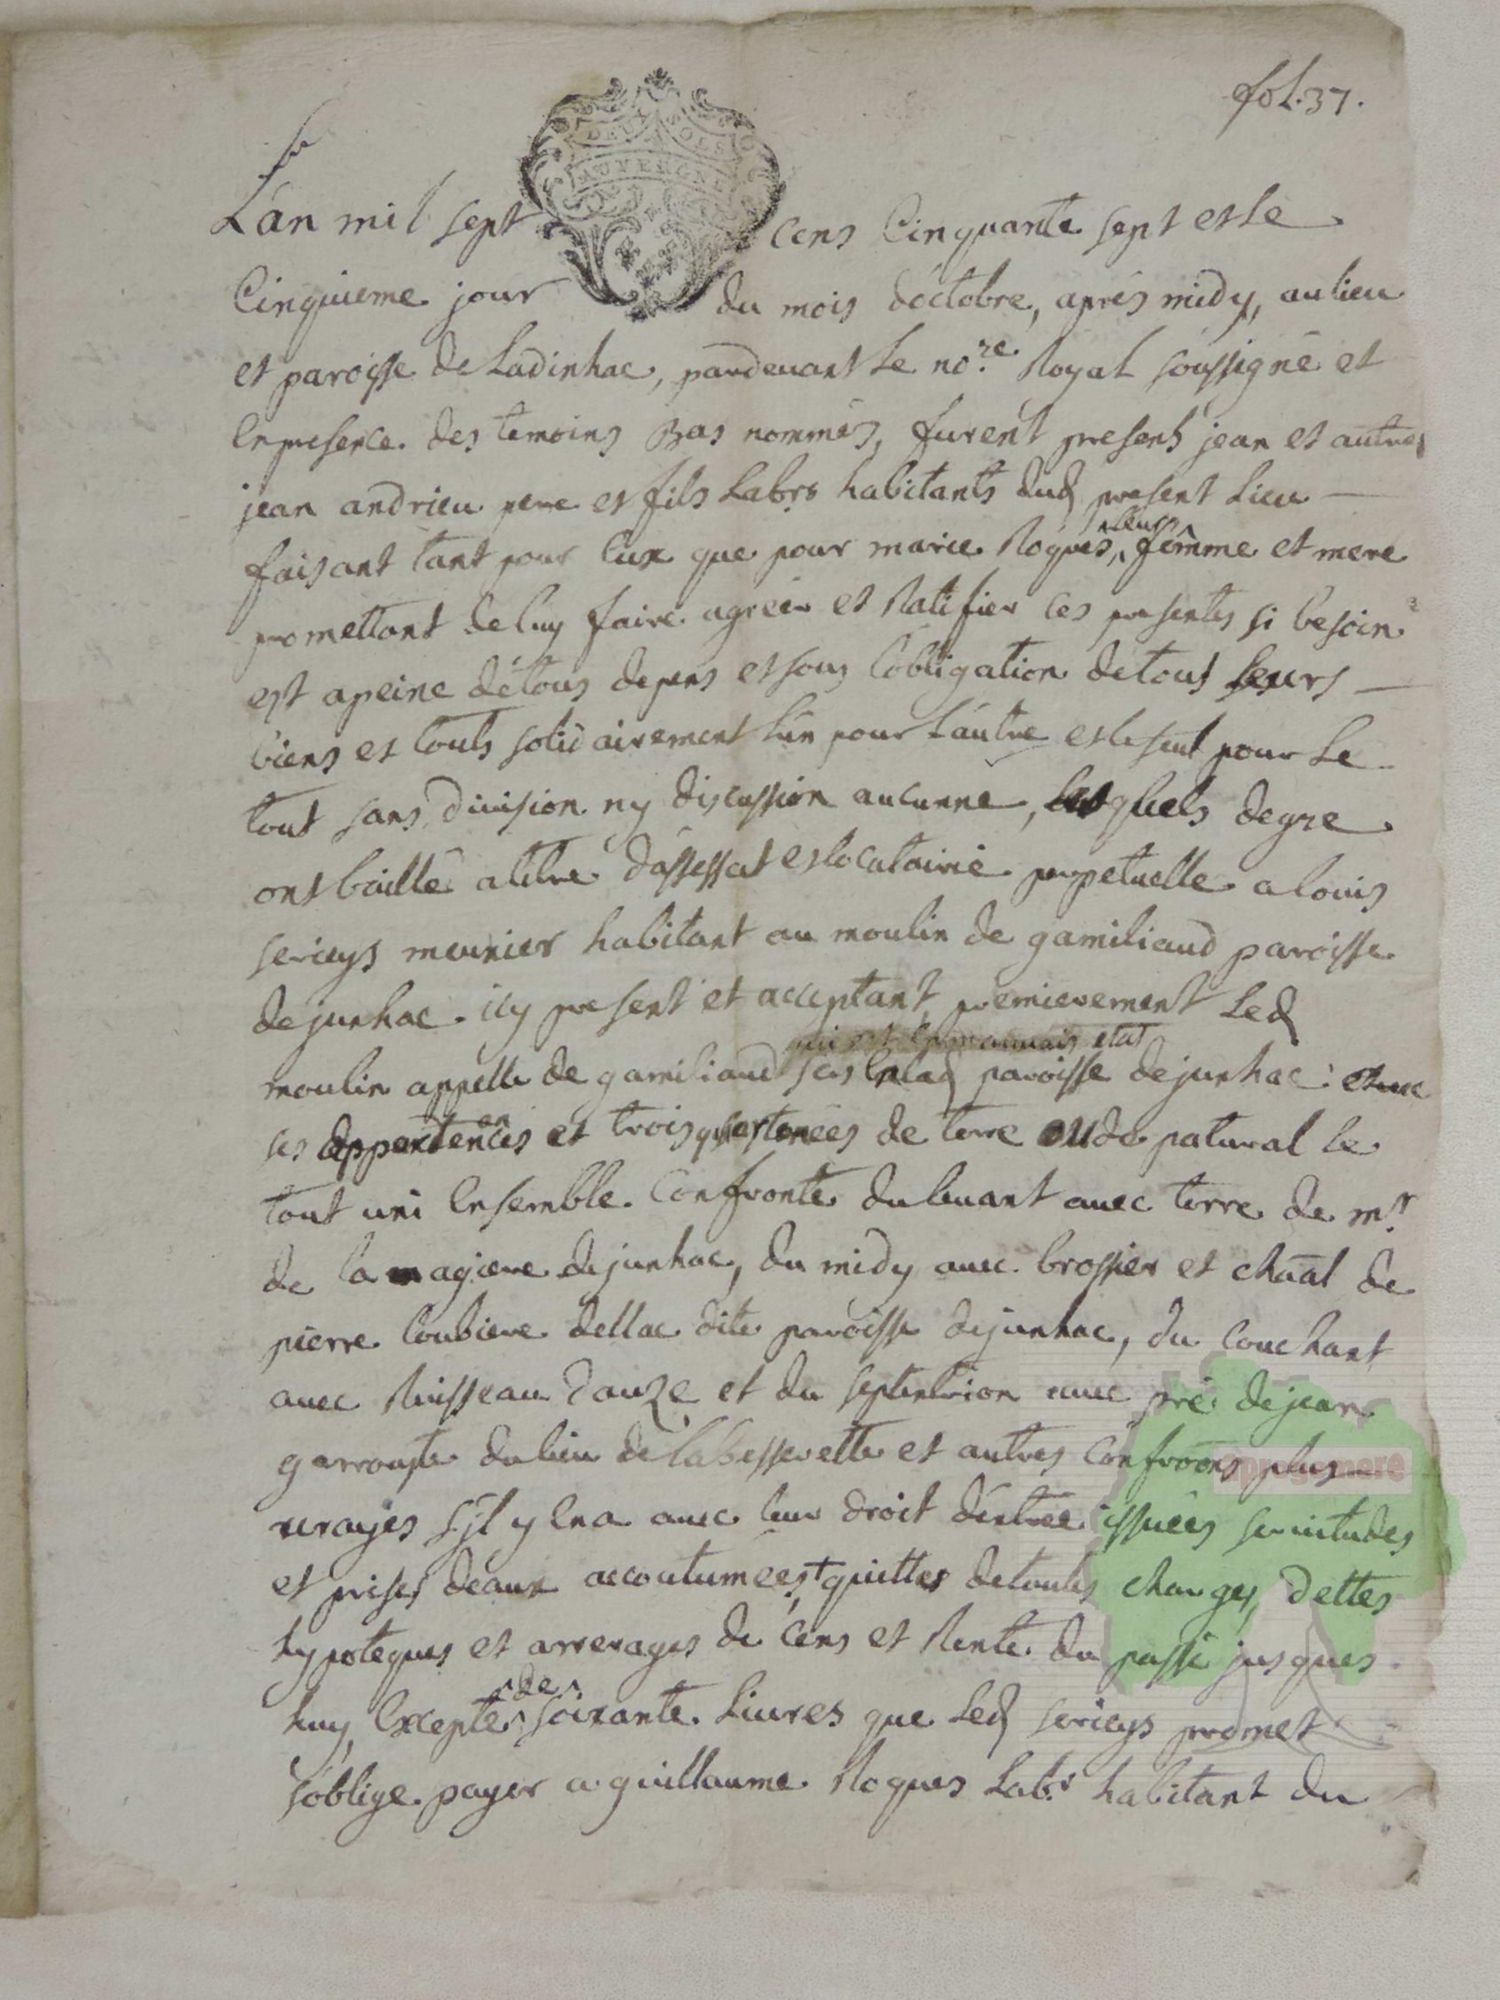 fol. 37.
DEUX SOLS
AUVERGNE
L'an mil sept cens Cinquante sept et le
Cinquieme jour du mois d'octobre, aprés midy, au lieu
et paroisse de Ladinhac, pardevant Le no.re Royal soussigné et
En presence des temoins Bas nommés, furent presents jean et autre
jean andrieu pere et fils Labrs habitants dud present Lieu —
faisant tant pour Eux que pour marie Roques, leurs femme et mere
promettant de luy faire agréer et Ratifier ces presentes si besoin
est a peine de tous depens et sous l'obligation de tous leurs —
biens et touts solidairement L'un pour L'autre et le seul pour Le
tout sans division ny discussion aucunne, lesquels de gré
ont baillé a titre d'assessat et locatairie perpetuelle a louis
serieys meunier habitant au moulin de gamiliaud paroisse
de junhac icy present et acceptant, premierement Led
qui est en mauvais etat
moulin appellé de gamiliaud scis En lad paroisse de junhac avec
ses appartenences et trois quartonées de terre ou de patural le
tout uni Ensemble. Confronte du levant avec terre de mr.
de la magiere de junhac, du midy avec brossier et chāāl de
pierre Coubiere dellac dite paroisse de junhac, du Couchant
avec Ruisseau d'auze, et du septentrion avec pré de jean
garrouste du lieu de labesserette et autres Confrōōns plus
vrayes s'jl y En a avec leur droit d'entrée issuées servitudes
et prises deaux accoutumées, + quittes de toutes charges, Dettes
hypoteques et arrerages de Cens et Rente du passé jusques
huy, Excepté de soixante Livres que Led serieys promet
s'oblige payer a guillaume Roques Labr. habitant du
aprogemere